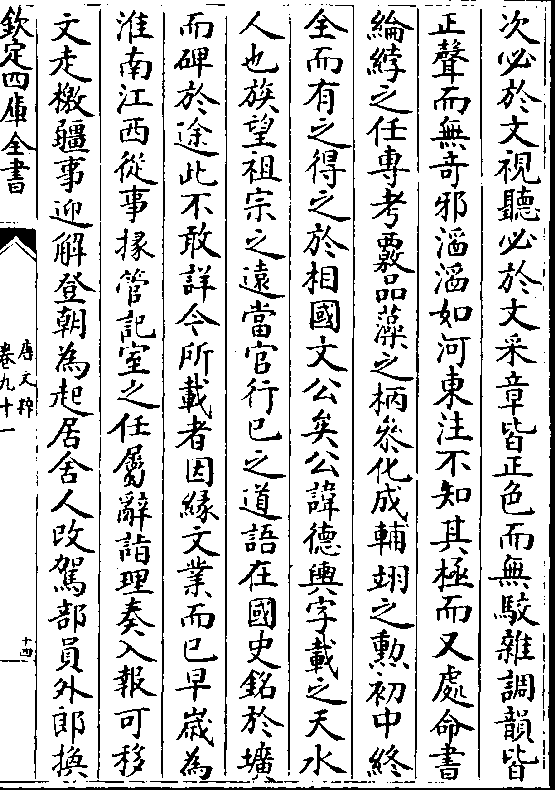 次必於文視聽必於文采章皆正色而無駁雜調韻皆
正聲而無奇邪滔滔如河東注不知其極而又處命書
綸綍之任專考覈品藻之柄叅化成輔翊之勲初中終
全而有之得之於相國文公矣公諱德輿字載之天水
人也族望祖宗之遠當官行已之道語在國史銘於壙
而碑於途此不敢詳今所載者因緣文業而已早嵗為
淮南江西從事掾管記室之任屬辭詣理奏入報可移
文走檄疆事迎解登朝為起居舍人改駕部員外郎換
欽定四庫全書
唐文粹
卷九十一
十四